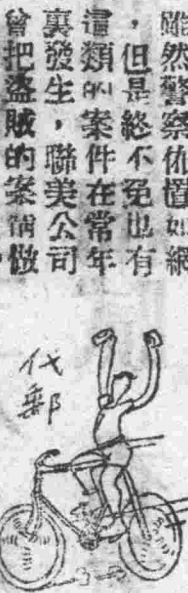 雖然警察佈置如網
，但是終不免也有
這類的案件在常年
裏發生，聯美公司
曾把盜賊的案情做
代郵